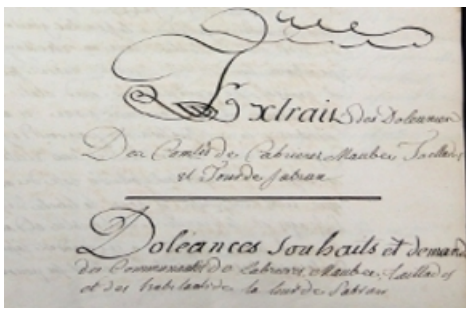 Extrait des Doleances
Des Comtés de Cabrieres Maubec Taillades
et Tour de Sabran
Doléances Souhaits et demand
des Communautés de Cabrieres, Maubec, Taillades
et des habitants de la tour de Sabran